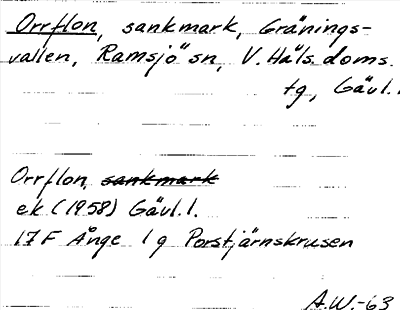 Orrflon, sankmark, Gränings-
vallen, Ramsjö sn, V. Häls. doms.
tg, Gävl.
Orrflon sankmark
ek (1958) Gävl. l.
17 F Ånge 1 g Porstjärnskrusen
A.W.-63